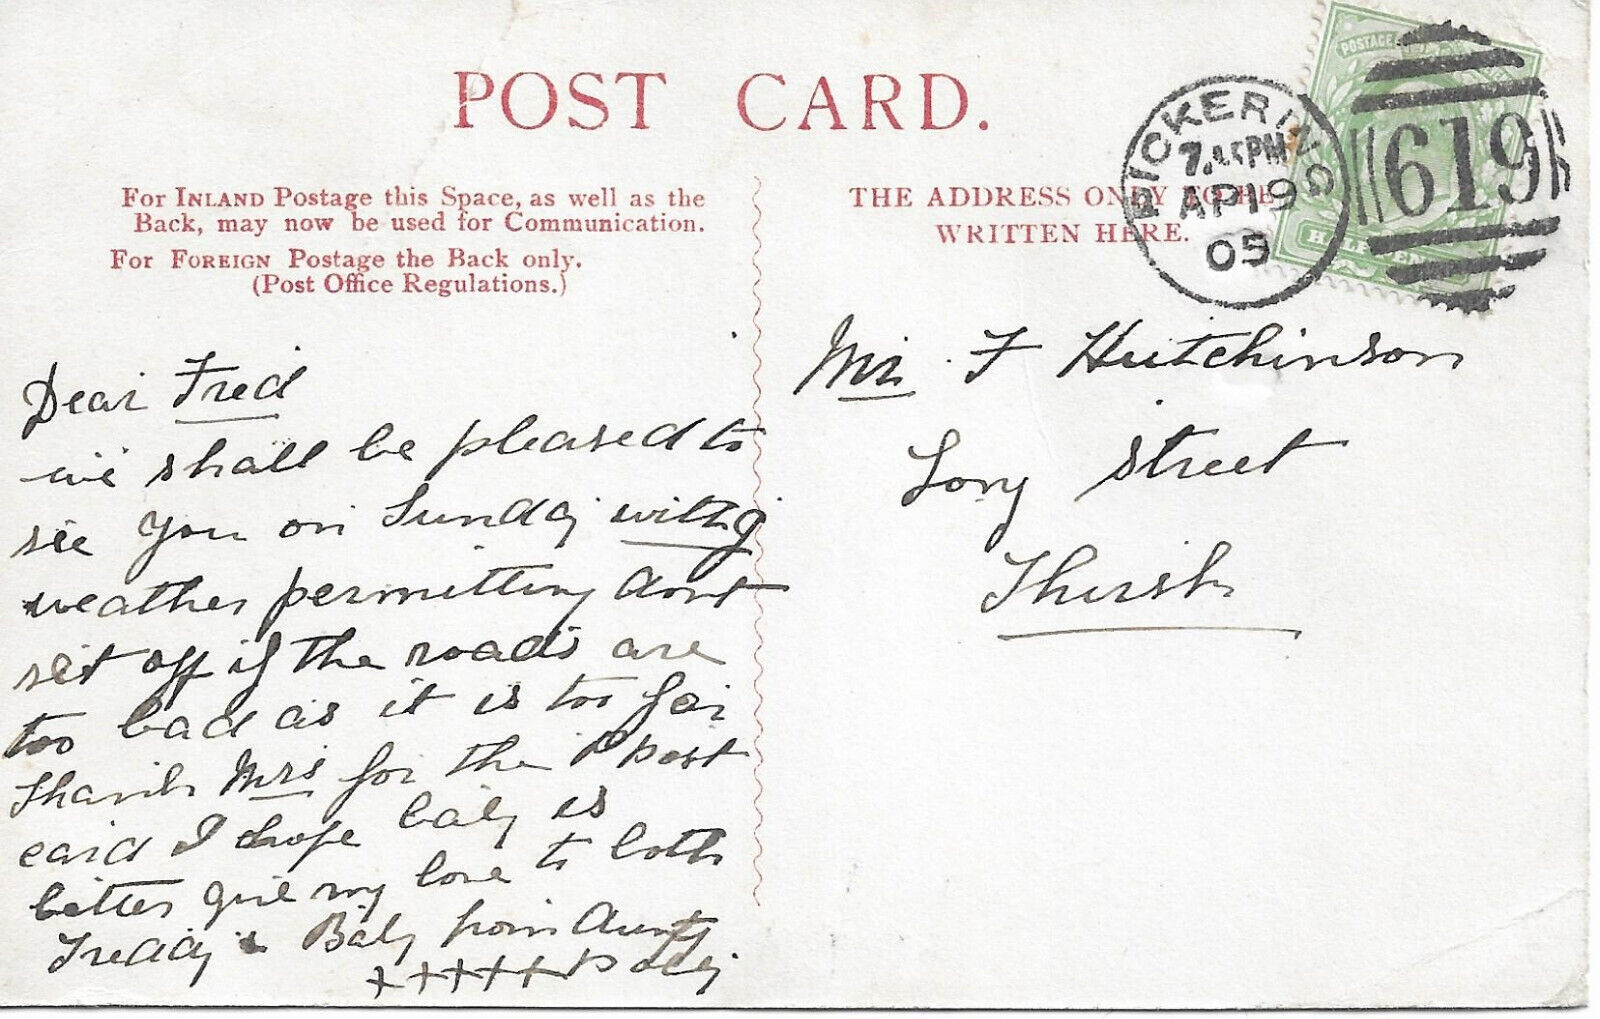 POST CARD.
For INLAND Postage this Space, as well as the
Back, may now be used for Communication.
For FOREIGN Postage the Back only.
(Post Office Regulations.)
THE ADDRESS ONLY TO BE
WRITTEN HERE.
PICKERING
PM
AP 19
05
619
POSTAGE
Dear Fred
we shall be pleased to
see you on Sunday
weather permitting dont
set off if the roads are
too bad as it is too far
Thank Mrs for the P Post
card I hope baby is
better give my love to both
Freddy & Baby from Aunty
++++++ Polly
Mr. F Hutchinson
Long Street
Thirsk